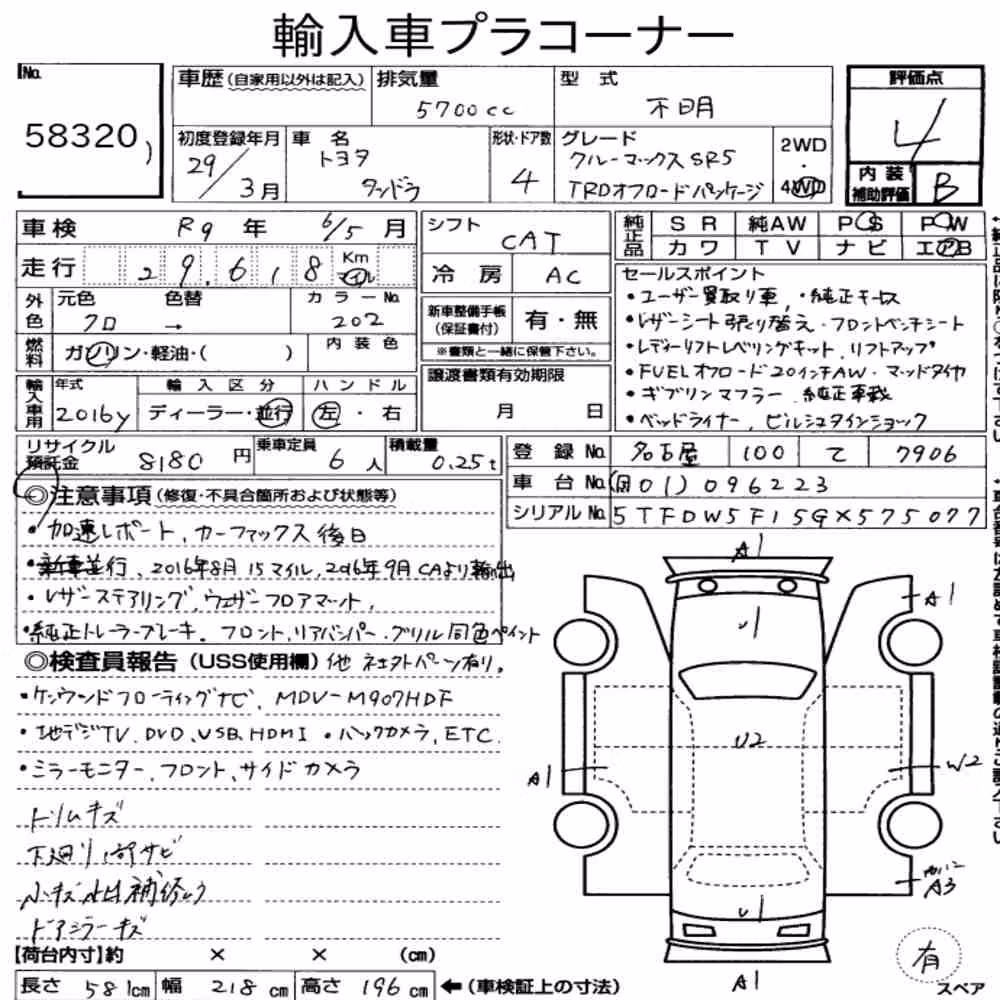 輸入車プラコーナー
No.
58320
車歴(自家用以外は記入) 排気量 型 式 評価点
5700cc 不明 4
初度登録年月 車 名 形状・ドア数 グレード 2WD
29/3月 トヨタ タンドラ 4 クルーマックス SR5 ・
TRDオフロードパッケージ 4WD
内装補助評価 B
車検 R9 年 6/5 月 シフト CAT
走行 29,618 Km マイル 冷房 AC
純正品 SR 純AW PS PW
カワ TV ナビ エアB
外色 元色 色替 カラーNo.
クロ → 202
新車整備手帳(保証書付) 有・無
※書類と一緒に保管下さい。
燃料 ガソリン・軽油・( ) 内装色
輸入車用 年式 輸入区分 ハンドル
2016y ディーラー・並行 左・右
譲渡書類有効期限
月 日
セールスポイント
・ユーザー買取り車,・純正キーレス
・レザーシート張り替え・フロントベンチシート
・レディーリフトレベリングキット,リフトアップ
・FUELオフロード20インチAW・マッドタイヤ
・ギブソンマフラー 純正車載
・ベッドライナー, ビルシュタインショック
リサイクル預託金 8180 円 乗車定員 6 人 積載量 0.25t
登録No. 名古屋 100 て 7906
車台No. 国[01]096223
シリアルNo. 5TFDW5F15GX575077
◎注意事項(修復・不具合箇所および状態等)
・加速レポート,カーファックス後日
・新車並行、2016年8月 15マイル,2016年9月 CAより輸出
・レザーステアリング,ウェザーフロアマット,
・純正トレーラーブレーキ. フロント,リアバンパー,グリル同色ペイント
◎検査員報告(USS使用欄) 他 社外パーツ有り。
・ケンウッドフローティングナビ, MDV-M907HDF
・地デジTV,DVD,USB,HDMI・バックカメラ,ETC.
・ミラーモニター,フロント,サイドカメラ
トリムキズ
下廻り サビ
小キズ 凹 補修
ドアミラーキズ
A1
A1
U1
U2
A1
W2
A3
U1
A1
【荷台内寸】約 × × (cm)
長さ 581cm 幅 218cm 高さ 196cm ←(車検証上の寸法)
有
スペア